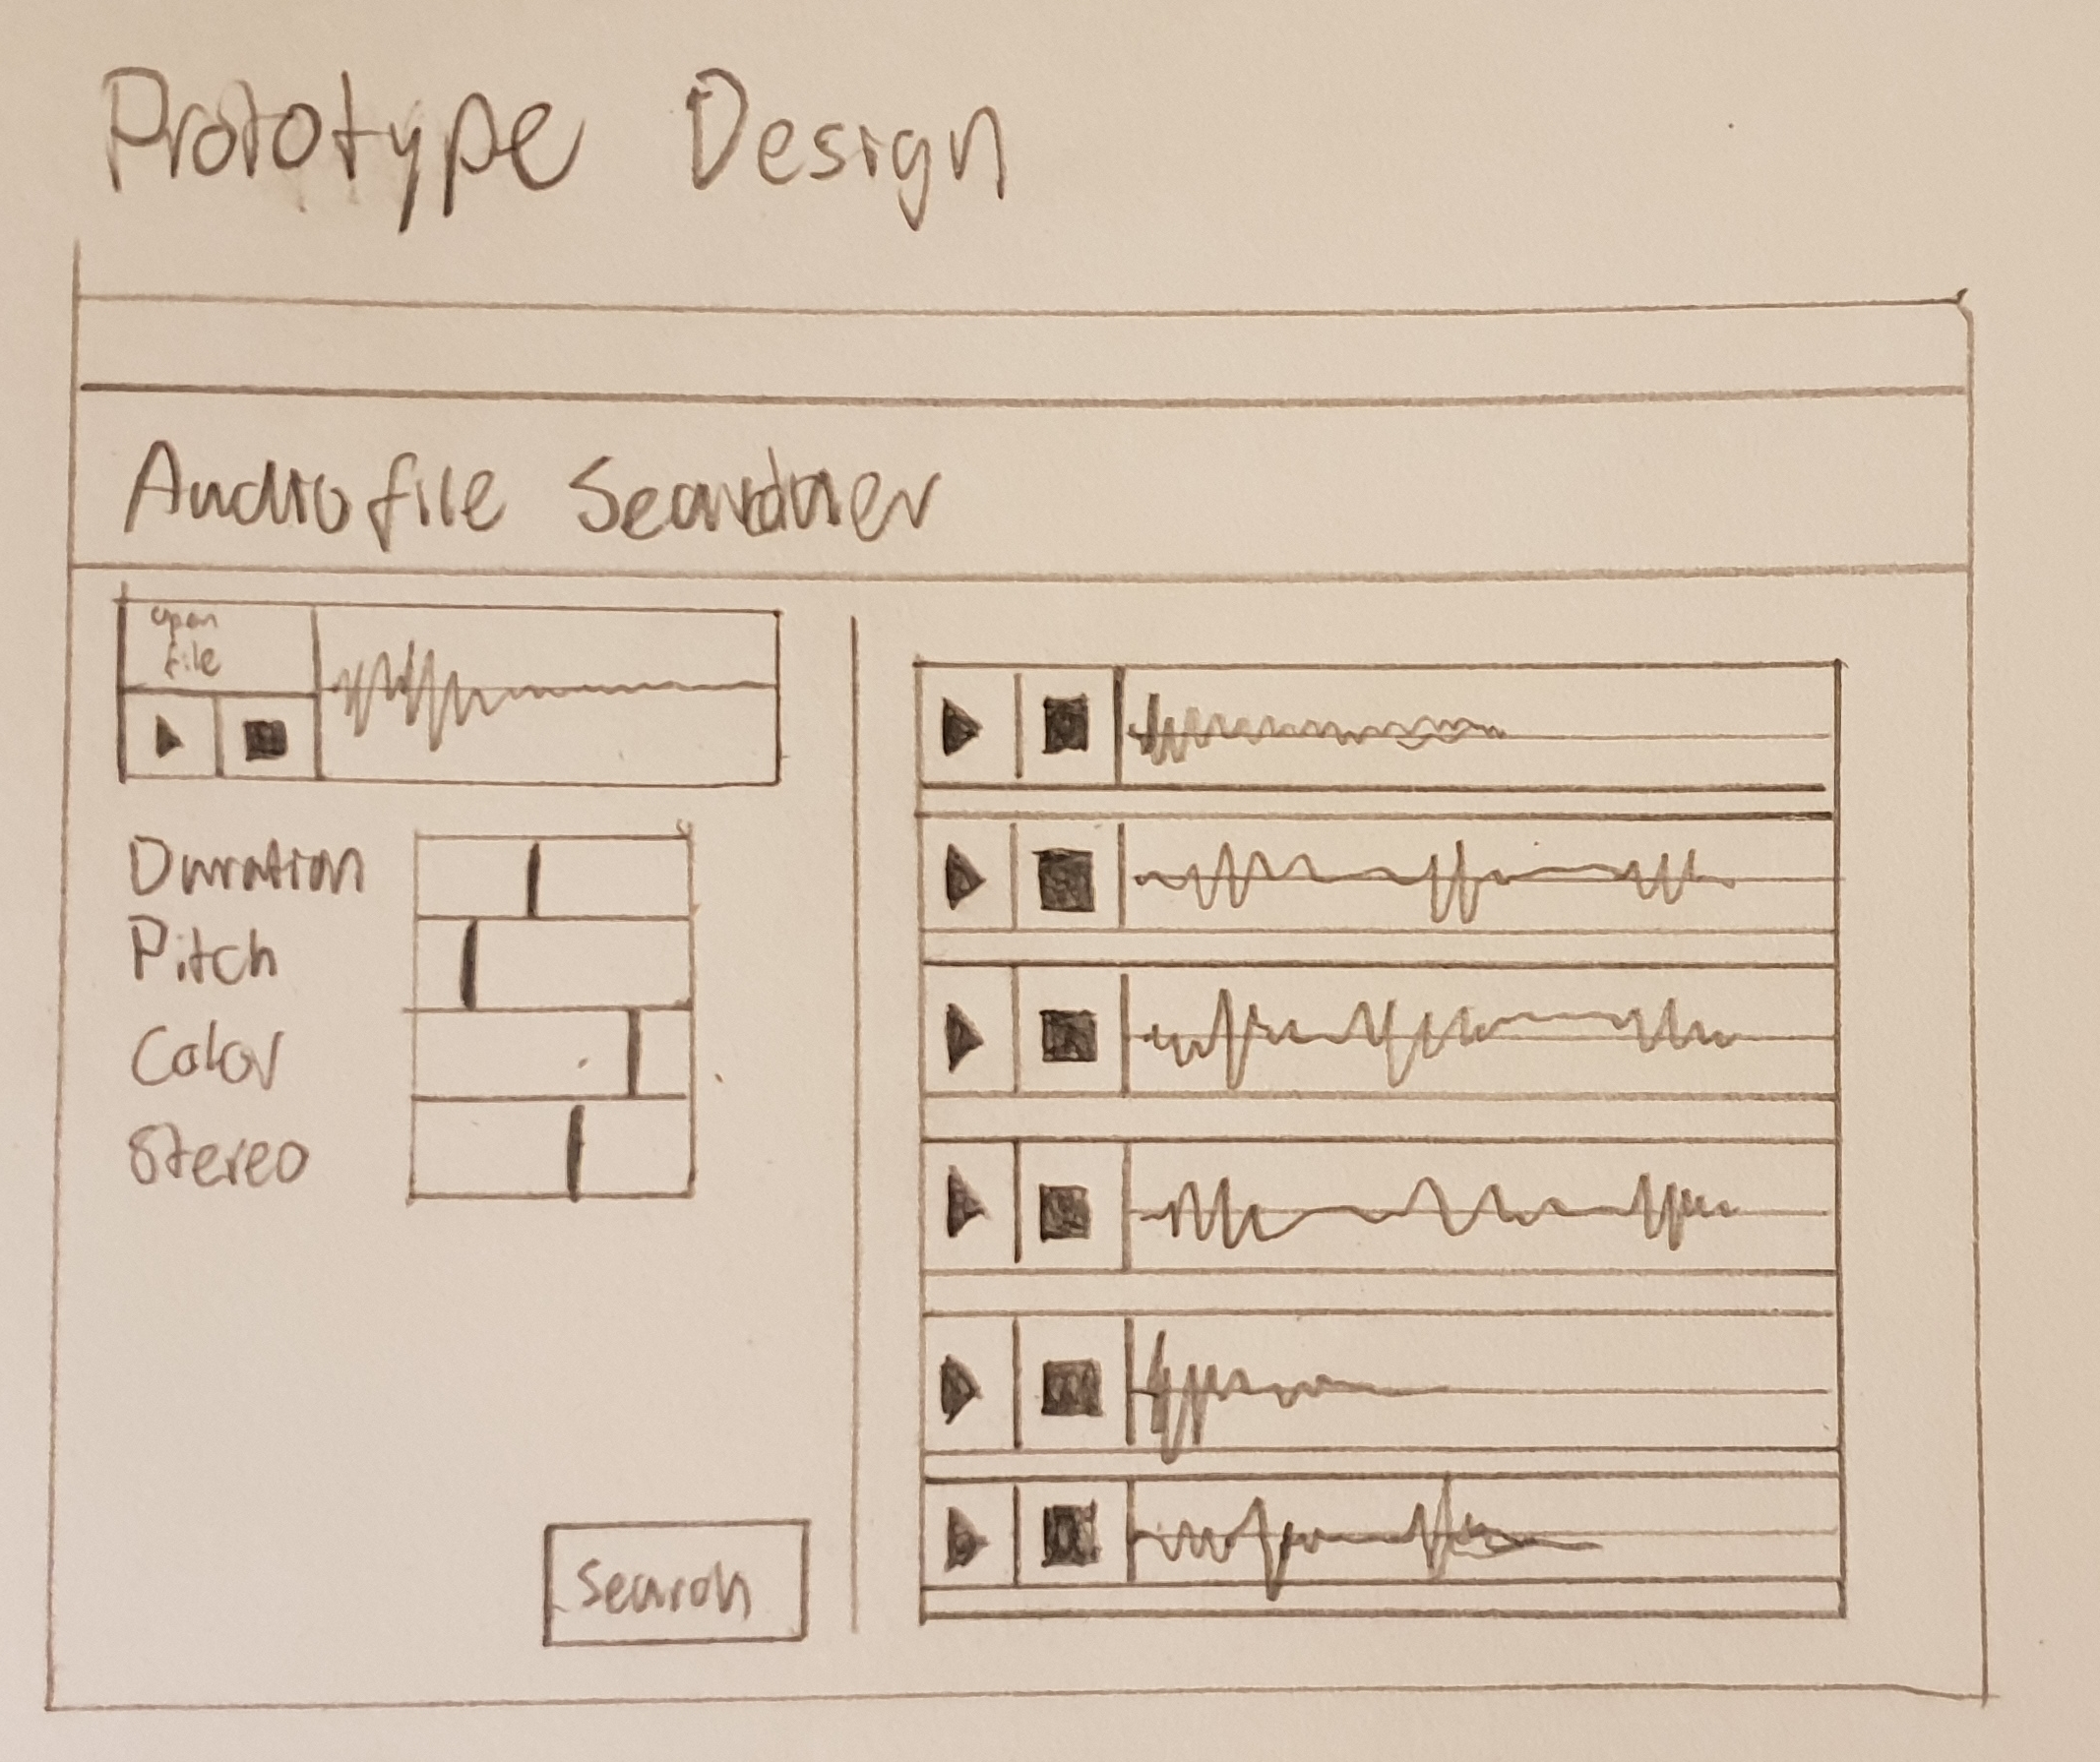 Prototype Design
Audiofile Searcher
open
file
Duration
Pitch
Color
Stereo
Search